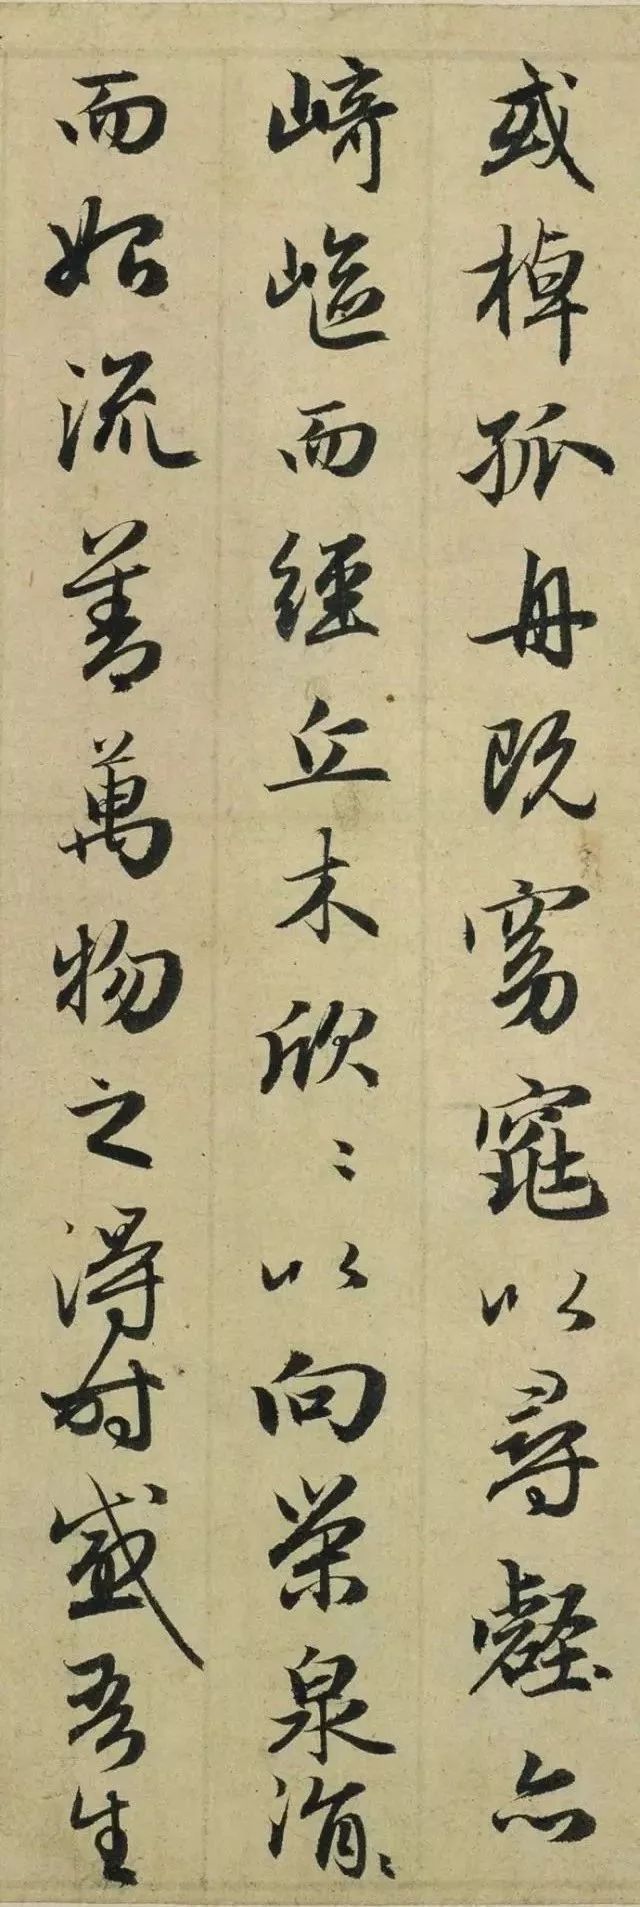 或棹孤舟既窈窕以尋壑亦
崎嶇而經丘木欣〻以向榮泉涓〻
而始流善萬物之得時感吾生